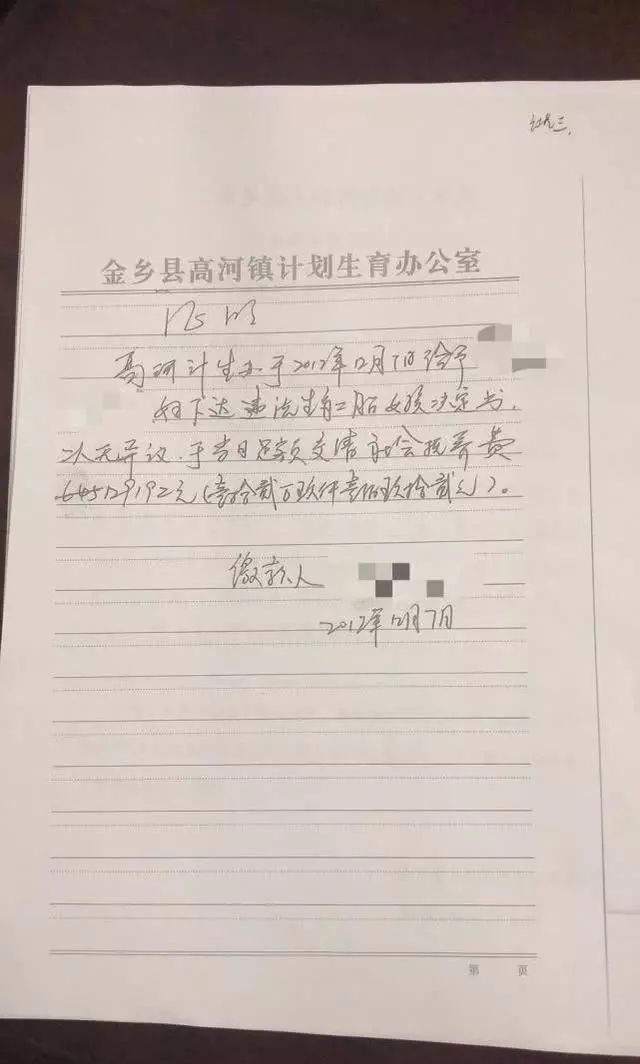 金乡县高河镇计划生育办公室
证明
高河计生办于2012年12月7日给予
下达违法生育二胎女孩决定书,
无异议.于当日足额交清社会抚养费
129192元(壹拾贰万玖仟壹佰玖拾贰元)。
缴款人
2012年12月7日
第 页